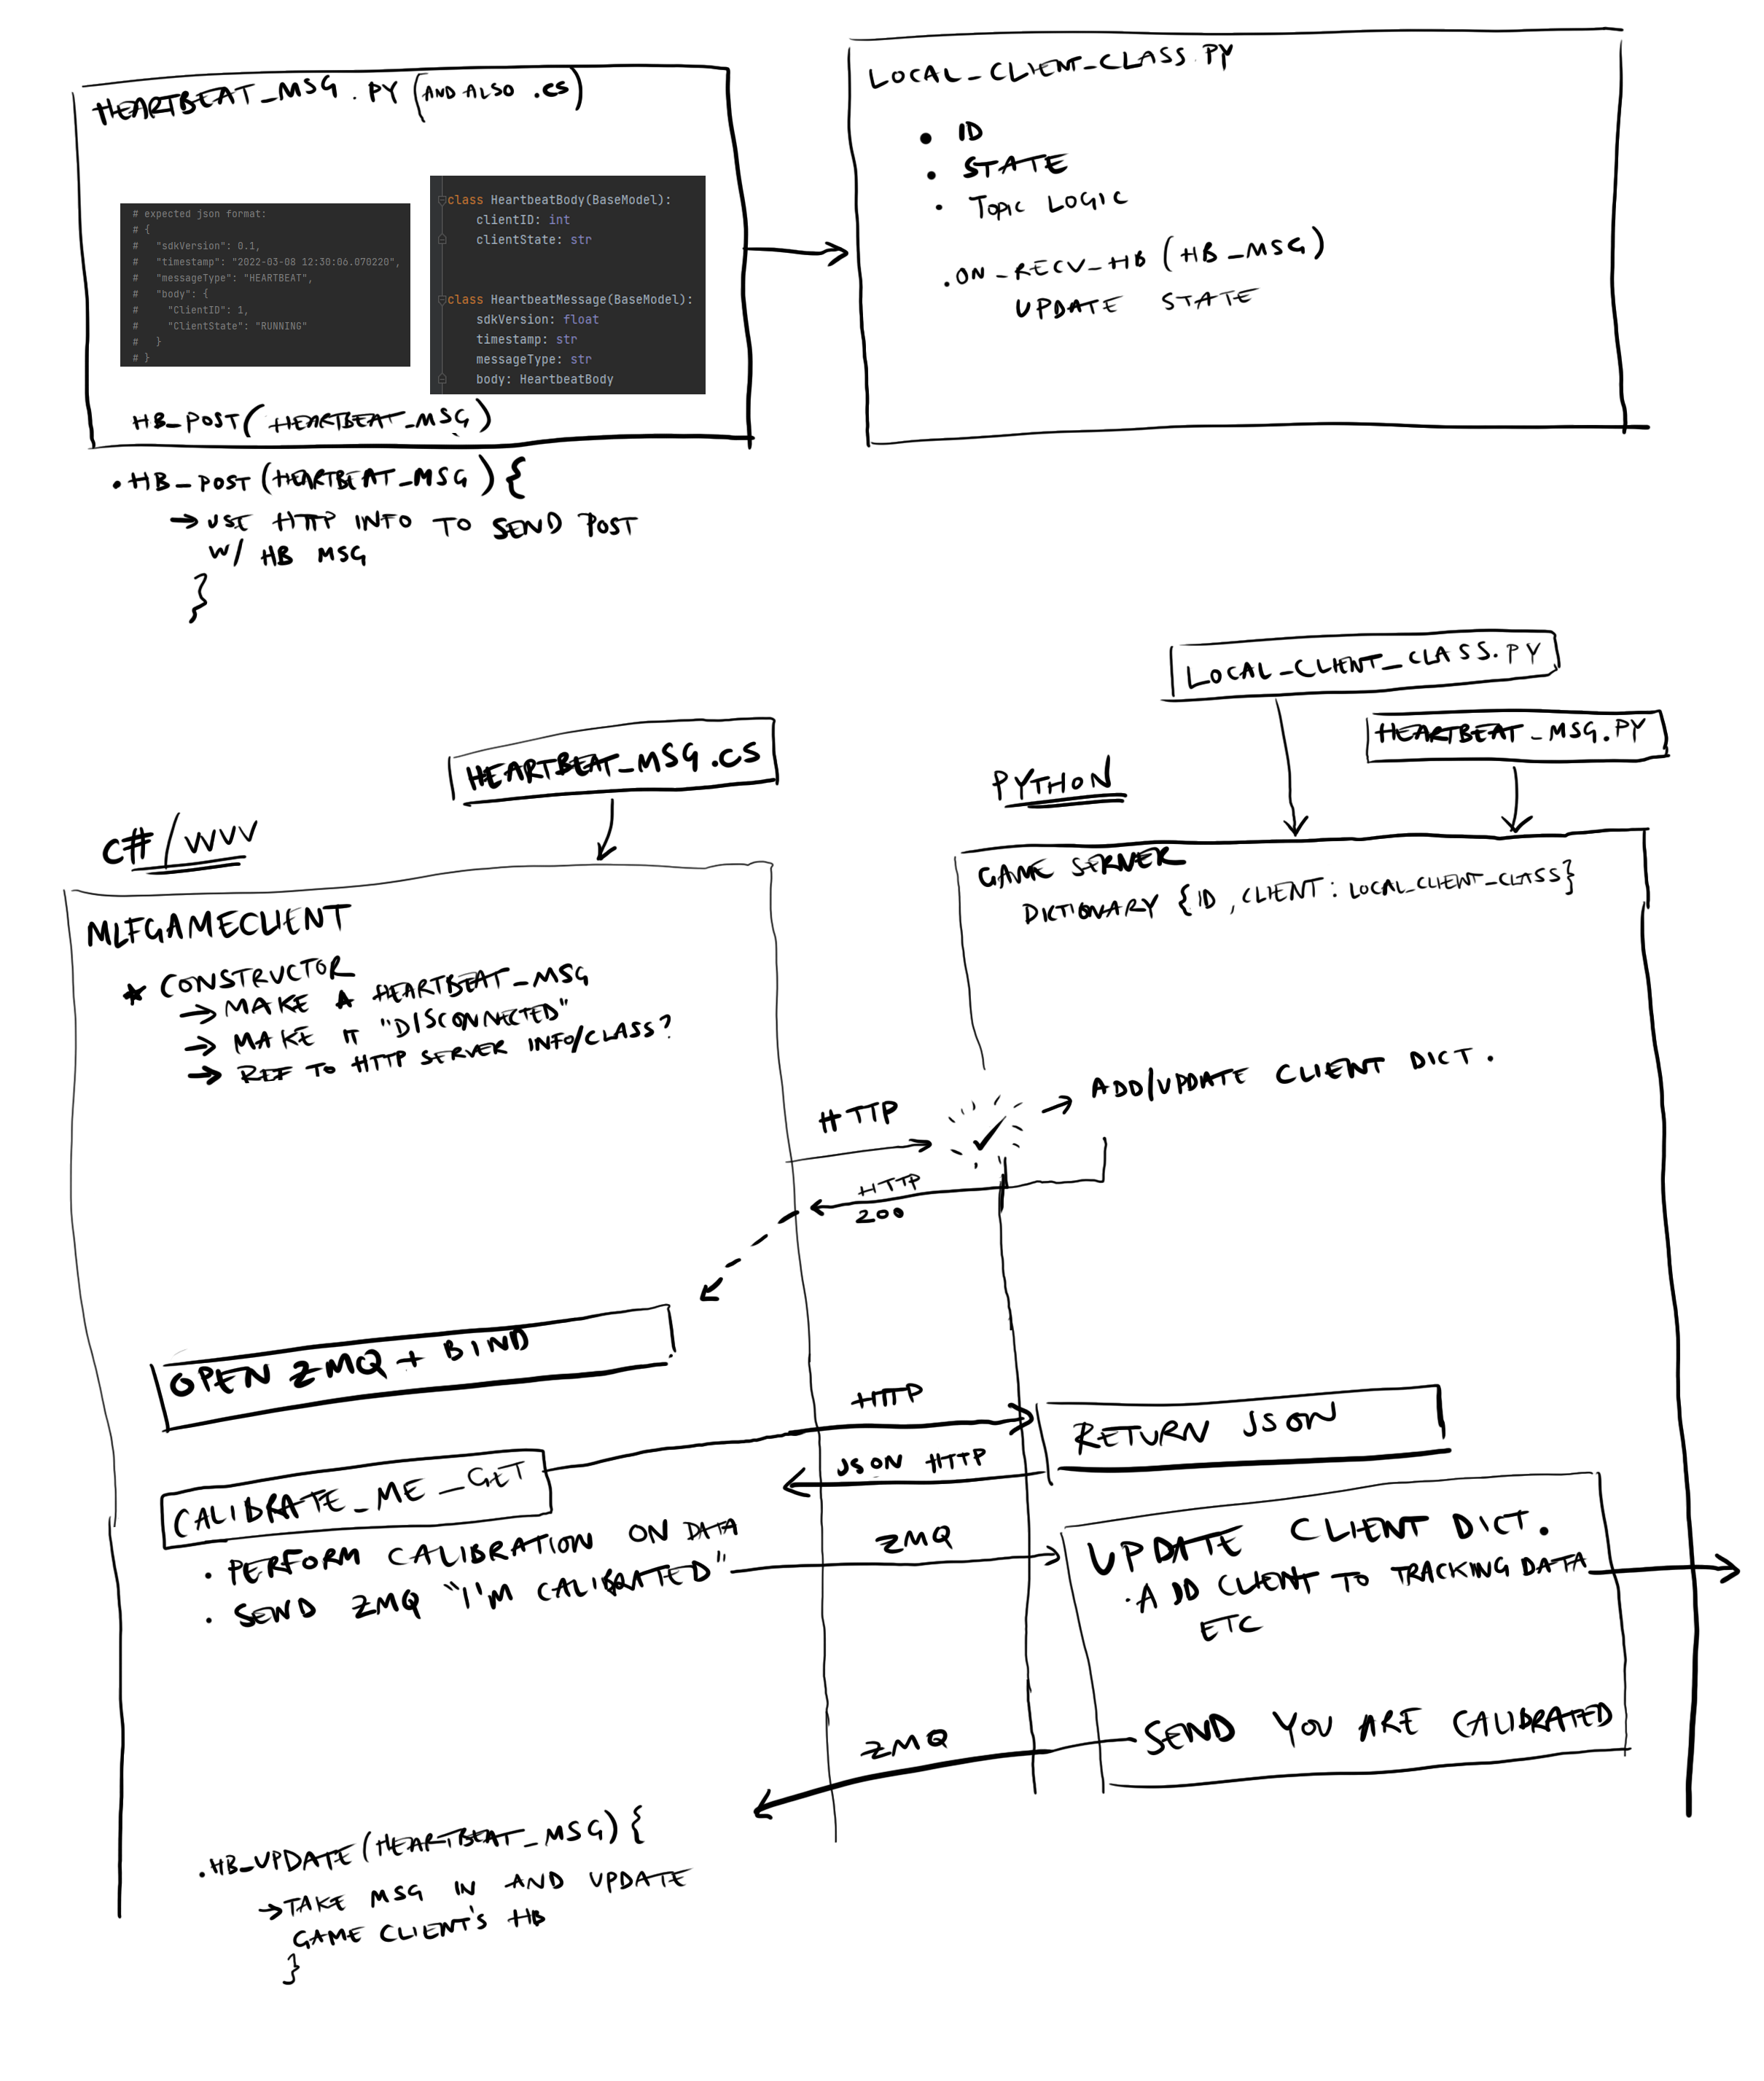 HEARTBEAT_MSG.PY (AND ALSO .CS)
# expected json format:
# {
#   "sdkVersion": 0.1,
#   "timestamp": "2022-03-08 12:30:06.070220",
#   "messageType": "HEARTBEAT",
#   "body": {
#     "ClientID": 1,
#     "ClientState": "RUNNING"
#   }
# }
class HeartbeatBody(BaseModel):
    clientID: int
    clientState: str
class HeartbeatMessage(BaseModel):
    sdkVersion: float
    timestamp: str
    messageType: str
    body: HeartbeatBody
HB_POST(HEARTBEAT_MSG)
• HB_POST(HEARTBEAT_MSG){
→ USE HTTP INFO TO SEND POST
W/ HB MSG
}
LOCAL_CLIENT_CLASS.PY
• ID
• STATE
• TOPIC LOGIC
.ON_RECV_HB (HB_MSG)
UPDATE STATE
LOCAL_CLIENT_CLASS.PY
HEARTBEAT_MSG.PY
HEARTBEAT_MSG.CS
PYTHON
C#/WVV
MLFGAMECLIENT
* CONSTRUCTOR
→ MAKE A HEARTBEAT_MSG
→ MAKE IT "DISCONNECTED"
→ REF TO HTTP SERVER INFO/CLASS?
GAME SERVER
DICTIONARY {ID, CLIENT: LOCAL_CLIENT_CLASS}
HTTP
✓ → ADD/UPDATE CLIENT DICT.
HTTP
200
OPEN ZMQ + BIND
HTTP
RETURN JSON
JSON HTTP
CALIBRATE_ME_GET
• PERFORM CALIBRATION ON DATA
• SEND ZMQ "I'M CALIBRATED"
ZMQ
UPDATE CLIENT DICT.
• ADD CLIENT TO TRACKING DATA
ETC
SEND YOU ARE CALIBRATED
ZMQ
.HB_UPDATE(HEARTBEAT_MSG){
→ TAKE MSG IN AND UPDATE
GAME CLIENT'S HB
}